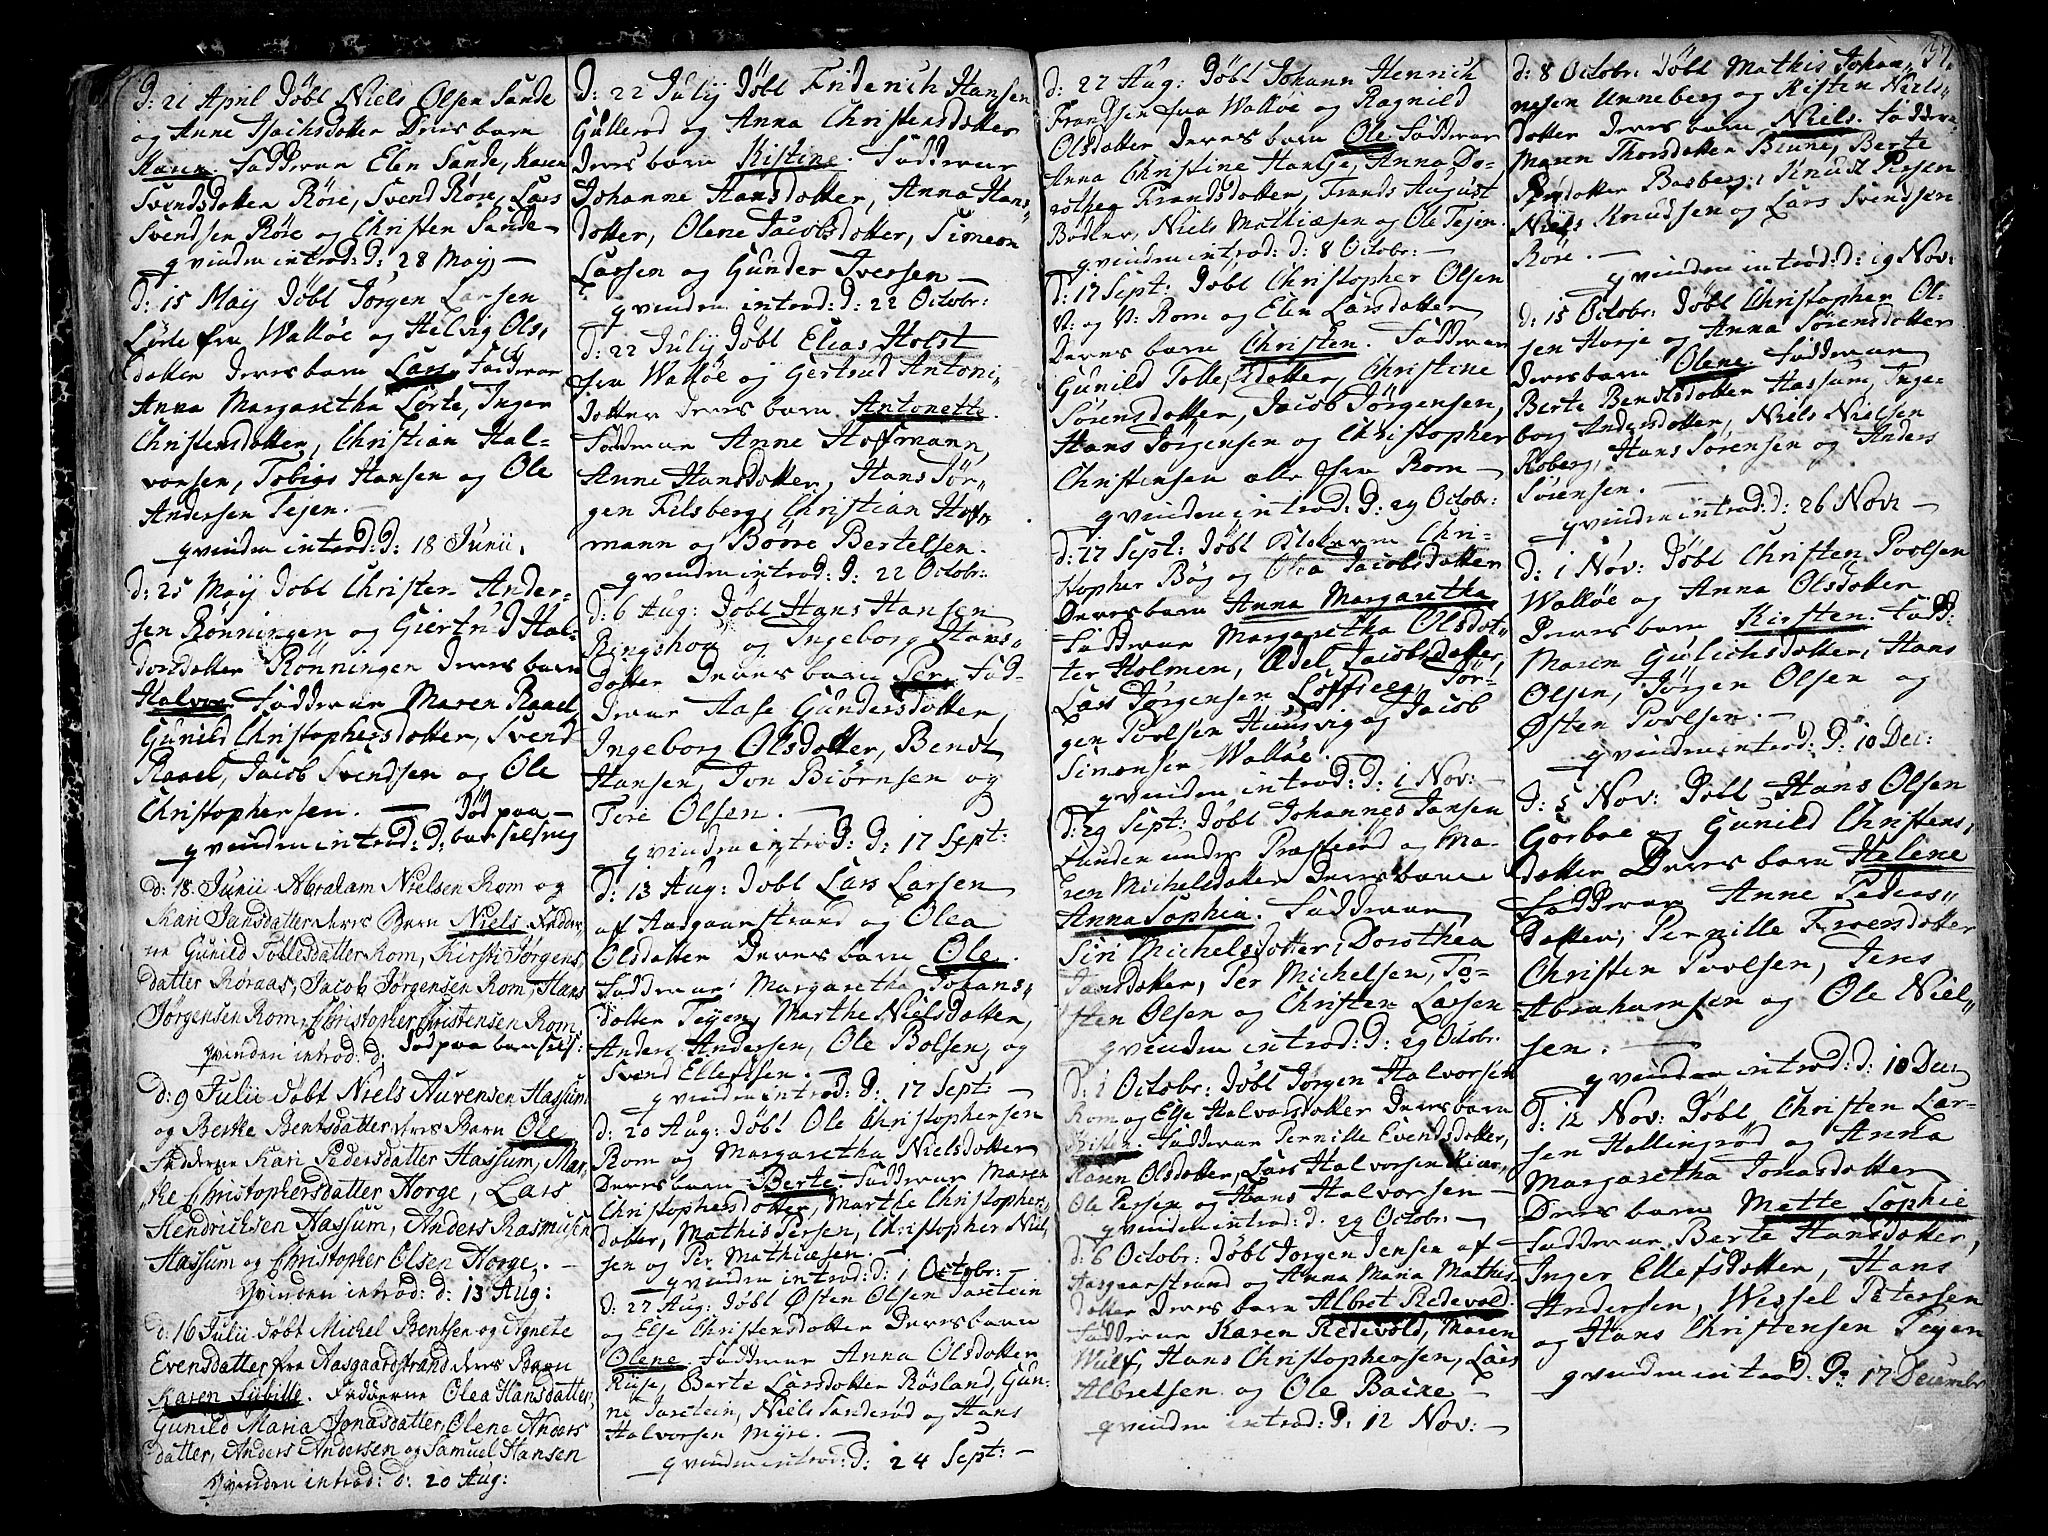 D: 21 April Döbt Niels Olsen Sande
og Anne Isachsdatter Deres barn
Karen Fadderne Elen Sande, Karen
Svendsdatter Röre, Svend Röre, Lars
Svendsen Röre og Christen Sande –
qvinden introd: D: 28 Maij –
D: 15 Maij Döbt Jörgen Larsen
Lörte fra Walløe og Helvig Ols„
datter deres barn Lars. Fadderne
Anna Margaretha Lörte, Inger
Christensdatter, Christian Hal-
vorsen, Tobias Hansen og Ole
Andersen Tejen. –
qvinden introd: D: 18 Junii.
D: 25 Maij Döbt Christen Ander-
sen Rönningen og Giertrud Hal-
vorsdatter Rönningen deres barn
Halvor. Fadderne Maren Raael,
Gunild Christophersdatter, Svend
Raael, Jacob Svendsen og Ole
Christophersen. – Död paa –
qvinden introd: D: barselseng
d: 18 Junii Abraham Nielsen Rom og
Kari Jansdatter deres Barn Niels Fadder-
ne Gunild Tollesdatter Rom, Kirsti Jørgens
datter Røraas, Jacob Jørgensen Rom, Hans
Jørgensen Rom, Christopher Christensen Rom.
qvinden introd: d: död paa barsels:
d: 9 Julii døbt Niels Aurensen Hassum
og Berthe Bentsdatter deres Barn Ole
Fadderne Kari Pedersdatter Hassum, Mar-
the Christophersdatter Horge, Lars
Hendricksen Hassum, Anders Rasmusen
Hassum og Christopher Olsen Horge. –
Qvinden introd: d: 13 Aug:
d: 16 Julii døbt Michel Bentsen og Agnete
Evensdatter fra Aasgaardstrand deres Barn
Karen Sybille. Fadderne Olea Hansdatter,
Gunild Maria Jonasdatter, Olene Anders
datter, Anders Andersen og Samuel Hansen
Qvinden introd: d: 20 Aug:
D: 22 Julij Döbt Friderich Hansen
Gullerod og Anna Christensdatter
deres barn Kistine. Fadderne
Johanne Hansdatter, Anna Hans„
datter, Olene Jacobsdatter, Simeon
Larsen og Gunder Iversen –
qvinden introd: D: 22 Octobr:
D: 22 Julij Döbt Elias Holst
fra Walløe og Gertrud Antoni„
dotter deres barn Antonette.
Fadderne Anne Hoffmann,
Anne Hansdotter, Hans Jör-
gen Filsberg, Christian Hof„
mann og Börre Bertelsen.
qvinden introd: D: 22 Octobr:
D: 6 Aug: Döbt Hans Hansen
Ringshou og Ingeborg Hans„
dotter Deres barn Per. Fad-
derne Aase Gundersdotter,
Ingeborg Olsdotter, Bendt
Hansen, Jon Biörnsen og
Tore Olsen. –
qvinden introd: D: 17 Sept:
D: 13 Aug: Döbt Lars Larsen
af Aasgaarstrand og Olea
Olsdotter Deres barn Ole.
Fadderne: Margaretha Johans„
dotter Tejen, Marthe Nielsdotter,
Anders Andersen, Ole Bolsen, og
Svend Ellefsen. –
qvinden introd: D: 17 Sept: –
D: 20 Aug: Döbt Ole Christophersen
Rom og Margaretha Nielsdotter
Deres barn Berte Fadderne Maren
Christophersdotter, Marthe Christophers„
dotter, Mathis Persen, Christopher Niel,
sen og Per Mathiæsen. –
qvinden introd: D: 1 Octobr: –
D: 27 Aug: Döbt Østen Olsen Jarstein
og Else Christensdotter Deres barn
Olene. Fadderne Anna Olsdotter
Riise, Berte Larsdotter Røsland, Gun-
ne Jarstein, Niels Sanderød og Hans
Halvorsen Myre. –
qvinden introd: D: 24 Sept: –
D: 27 Aug: Döbt Johann Henrich
Frandsen fra Walløe og Ragnild
Olsdotter deres barn Ole Fadderne
Anna Christine Hantje, Anna Do„
rothea Frandsdotter, Frands August
Bödker, Niels Mathiæsen og Ole Tejen.
qvinden introd: D: 8 Octobr: –
D: 17 Sept: Döbt Christopher Olsen
N: og N: Rom og Elen Larsdotter
Deres barn Christen. Fadderne
Gunild Tollefsdotter, Christine
Sörensdotter, Jacob Jørgensen,
Hans Jørgensen og Christopher
Christensen alle fra Rom –
qvinden introd: D: 29 Octobr:
D: 17 Sept: Döbt Chri-
stopher Bög og Olea Jacobsdotter
Deres barn Anna Margaretha
Fadderne Margaretha Olsdot„
ter Holmen, Edel Jacobsdotter,
Lars Jørgensen Jör-
gen Poelsen Huusvig og Jacob
Simonsen Walløe.
qvinden introd: D: 1 Nov: –
D: 29 Sept: Döbt Johannes Jansen
Lunden under Præsteiord og Ma-
ren Michelsdotter Deres barn
Anna Sophia. Fadderne
Siri Michelsdotter, Dorothea
Jansdotter, Per Michelsen, To-
sten Olsen og Christen Larsen
qvinden introd: D: 29 Octobr.
D: 1 Octobr: Döbt Jörgen Halvorsen
Rom og Else Halvorsdotter Deres barn
Fadderne Pernille Evendsdotter,
Karen Olsdotter, Lars Halvorsen Kiær,
Ole Persen og Hans Halvorsen –
qvinden introd: D: 29 Octobr: –
D: 6 Octobr: Döbt Jörgen Jensen af
Aasgaarstrand og Anna Maria Mathis
dotter Deres barn Albret Redevold.
Fadderne Karen Redevold, Maren
Wulf, Hans Christophersen, Lars
Albretsen og Ole Backe –
qvinden introd: D: 12 Nov: –
37.
D: 8 Octobr: Döbt Mathis Johan-
nesen Unneberg og Kisten Niels„
dotter deres barn Niels. Fadderne
Maren Thorsdotter Beune, Berte
dotter Basberg, Knudt Persen
Niels Knudsen og Lars Svendsen
Röre. –
qvinden introd: D: 19 Nov:
D: 15 Octobr: Döbt Christopher Ol-
sen Horje og Anna Sörensdotter
deres barn Olene. Fadderne
Berte Bendtsdotter Hassum, Inge-
borg Andersdotter, Niels Nielsen
Roberg, Hans Sörensen og Anders
Sörensen. –
qvinden introd: D: 26 Nov: –
D: 1 Nov: Döbt Christen Poelsen
Walløe og Anna Olsdotter
Deres barn Kirsten. Fadd:
Maren Gulichsdotter, Hans
Olsen, Jørgen Olsen og
Østen Poelsen. –
qvinden introd: D: 10 Dec:
D: 5 Nov: Döbt Hans Olsen
Gorboe og Gunild Christens„
dotter Deres barn Helene
Fadderne Anne Peders„
dotter, Pernille Iversdotter
Christen Poelsen, Jens
Abrahamsen og Ole Niel„
sen. –
qvinden introd: D: 10 Dec:
D: 12 Nov: Döbt Christen Lar-
sen Hallengröd og Anna
Margaretha Jonasdotter
Deres barn Mette Sophie
Fadderne Berte Hansdotter,
Inger Ellefsdotter, Hans
Andersen, Wessel Petersen
og Hans Christensen Tejen
qvinden introd: D: 17 Decembr